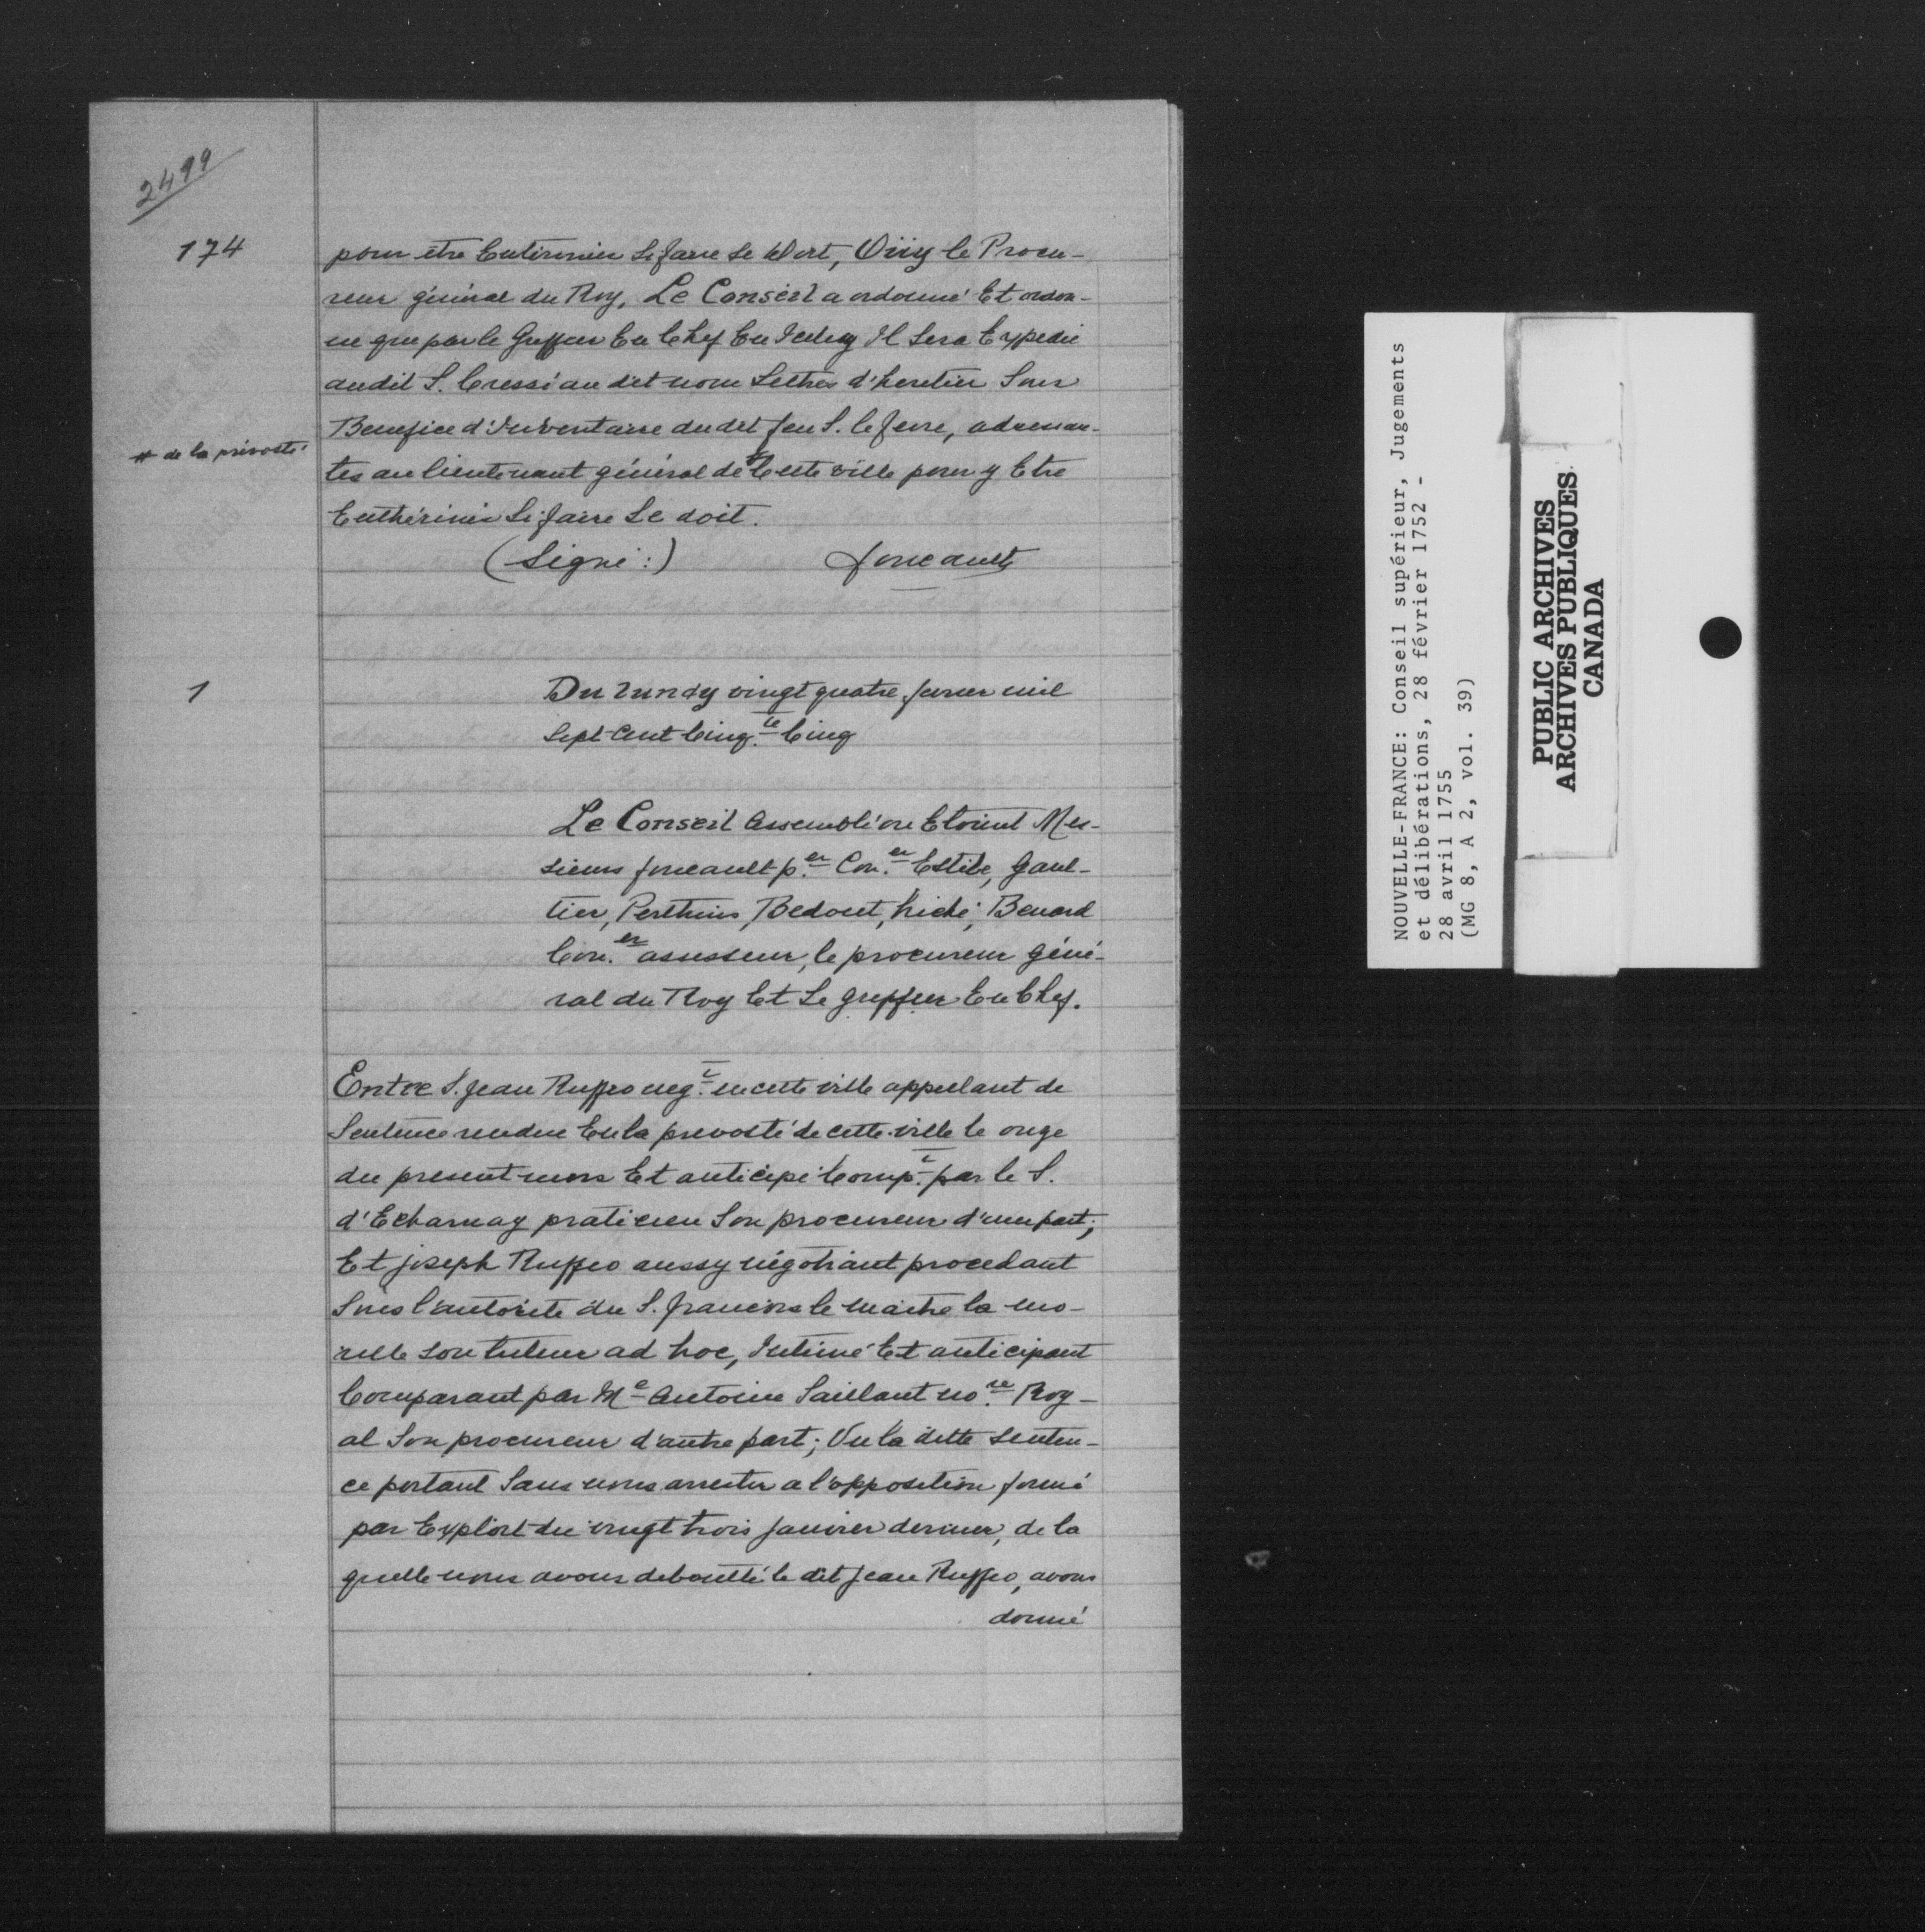 2499
174
pour être Entériniés Si faire Se doit, Oüy le Procu-
reur général du Roy, Le Conseil a ordonné Et ordon-
ne que par le Greffier En Chef En Iceluy Il Sera Expedié
audit S. Cressé au dit nom Lettres d'heritier Sous
Benefice d'Inventaire dudit feu S. lefevre, adressan-
# de la prévosté
tes au lieutenant général de # Cette ville pour y Etre
Enthérinés Si faire Se doit.
(Signé :) foucault
1
Du Lundy vingt quatre fevrier mil
Sept Cent Cinq.te Cinq
Le Conseil Assemblé ou Etoient Mes-
sieurs foucault p.er Con.er Estèbe, Gaul-
tier, Perthuis, Bedout, hiché, Benard
Con.er assesseur, le procureur géné-
ral du Roy Et Le greffier En Chef.
Entre S. Jean Ruffio neg.t en cette ville appellant de
Sentence rendue En la prevosté de cette ville le onze
du present mois Et anticipé Comp.t par le S.
d'Echarnay praticien Son procureur d'une part;
Et joseph Ruffio aussy négotiant procedant
Sous l'autorité du S. françois le maitre la mo-
rille son tuteur ad hoc, Intimé Et anticipant
Comparant par Me Antoine Saillant no.re Roy-
al Son procureur d'autre part; Vu la ditte senten-
ce portant Sans nous arrester a l'opposition formé
par Exploit du vingt trois Janvier dernier, de la
quelle nous avons deboutté le dit Jean Ruffio, avons
donné
NOUVELLE-FRANCE: Conseil supérieur, Jugements
et délibérations, 28 février 1752 -
28 avril 1755
(MG 8, A 2, vol. 39)
PUBLIC ARCHIVES
ARCHIVES PUBLIQUES
CANADA